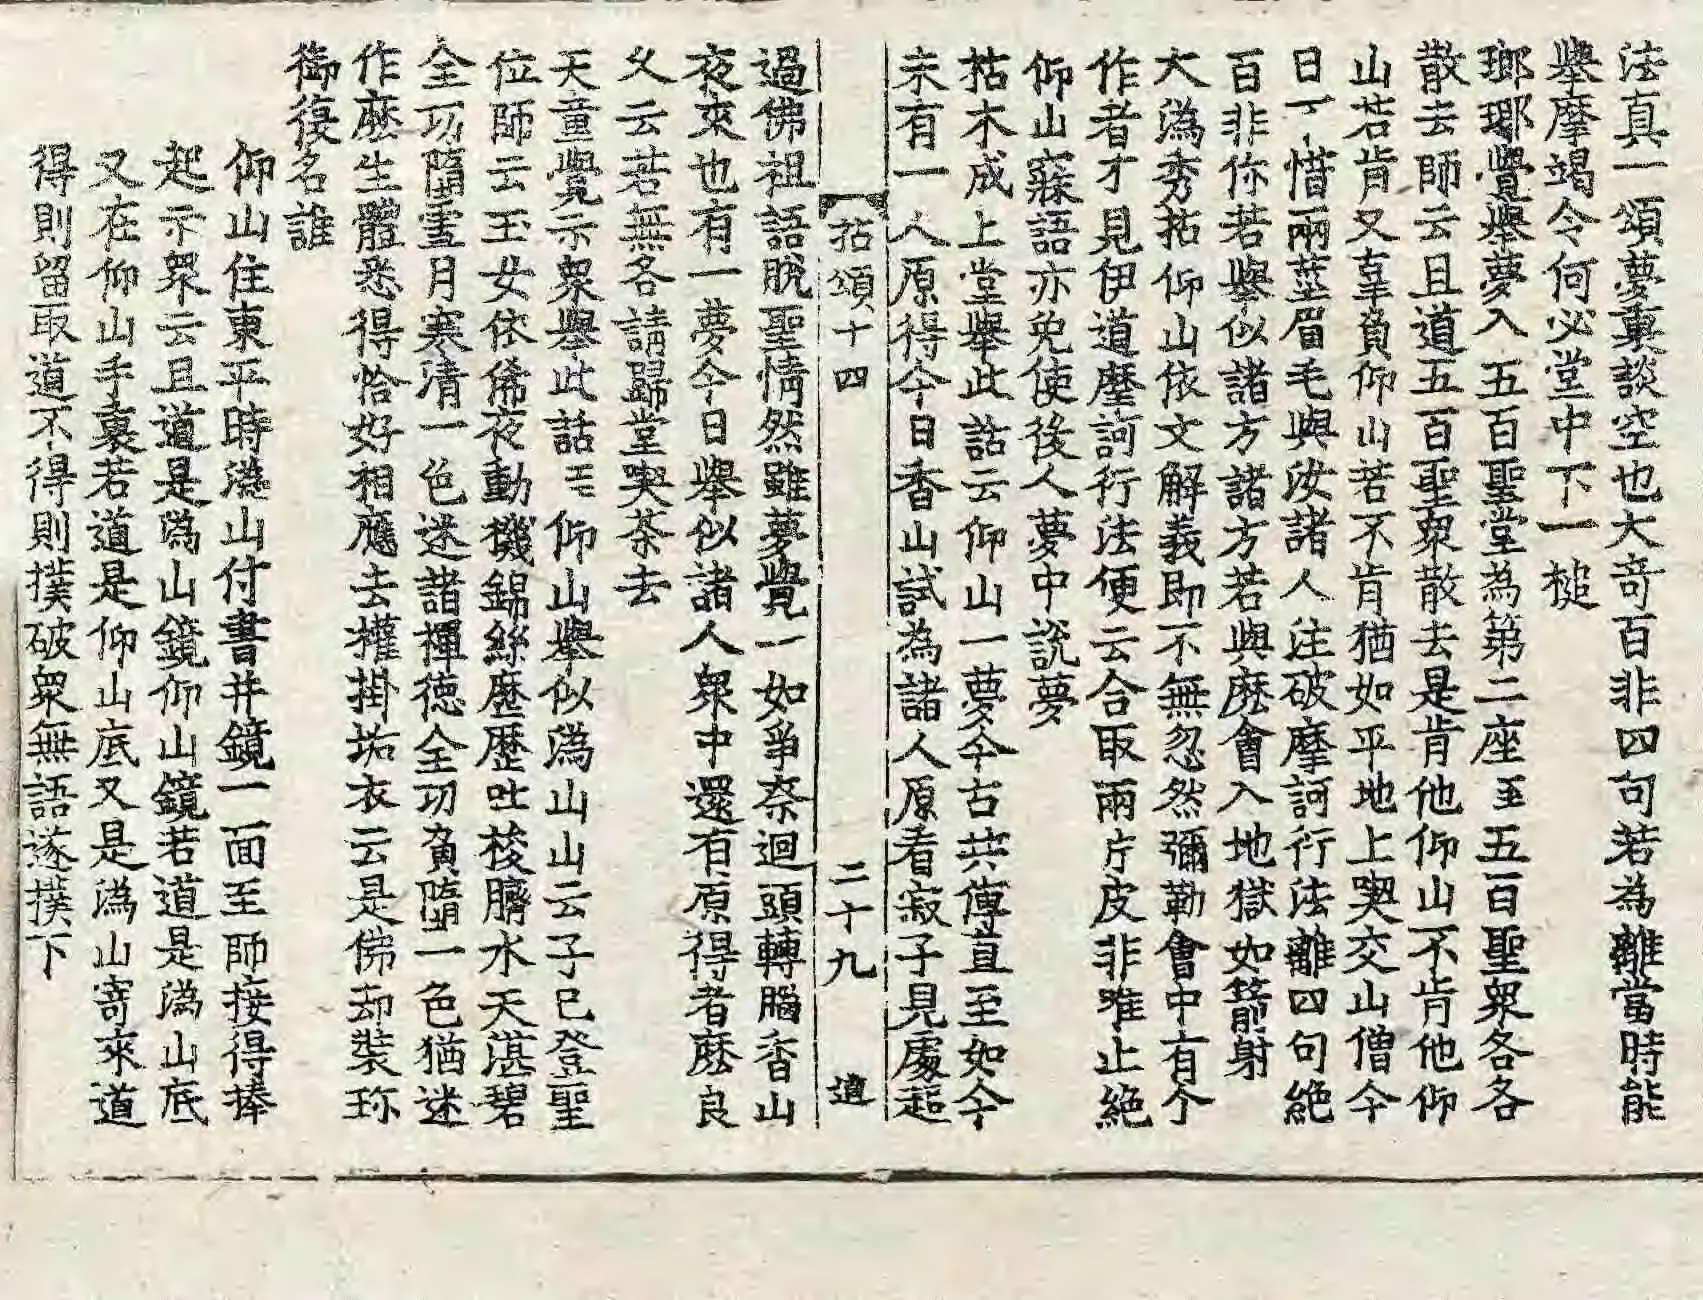 法真一頌夢裏談空也大奇百非四句若為離當時能
擧摩竭令何必堂中下一槌
瑯瑘覺擧夢入五百聖堂為第二座至五百聖衆各各
散去師云且道五百聖衆散去是肯他仰山不肯他仰
山若肯又辜負仰山若不肯猶如平地上喫交山僧今
日不惜兩莖眉毛與汝諸人注破摩訶衍法離四句絶
百非你若擧似諸方諸方若與麽會入地獄如箭射
大潙秀拈仰山依文解義即不無忽然彌勒會中有个
作者才見伊道摩訶衍法便云合取兩片皮非唯止絶
仰山寐語亦免使後人夢中說夢
枯木成上堂擧此話云仰山一夢今古共傳直至如今
未有一人原得今日香山試為諸人原看寂子見處超
拈頌十四 二十九 遒
過佛祖語脫聖情然雖夢覺一如爭柰迴頭轉腦香山
夜來也有一夢今日擧似諸人衆中還有原得者麽良
乆云若無各請歸堂喫茶去
天童覺示衆擧此話王仰山擧似潙山山云子已登聖
位師云玉女依俙夜動機錦絲歷歷吐梭臍水天湛碧
全功墮雪月寒淸一色迷諸禪德全功負墮一色猶迷
作麽生體悉得恰好相應去擢掛垢衣云是佛却裝珎
御復名誰
仰山住東平時潙山付書并鏡一面至師接得捧
起示衆云且道是潙山鏡仰山鏡若道是潙山底
又在仰山手裏若道是仰山底又是潙山寄來道
得則留取道不得則撲破衆無語遂撲下